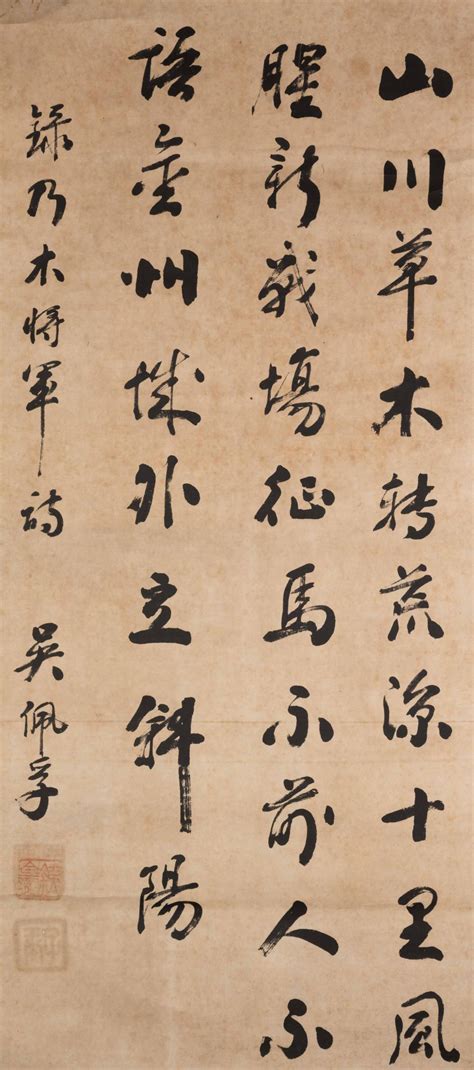 山川草木轉荒涼十里風
腥新戰場征馬不前人不
語金州城外立斜陽
錄乃木將軍詩 吳佩孚